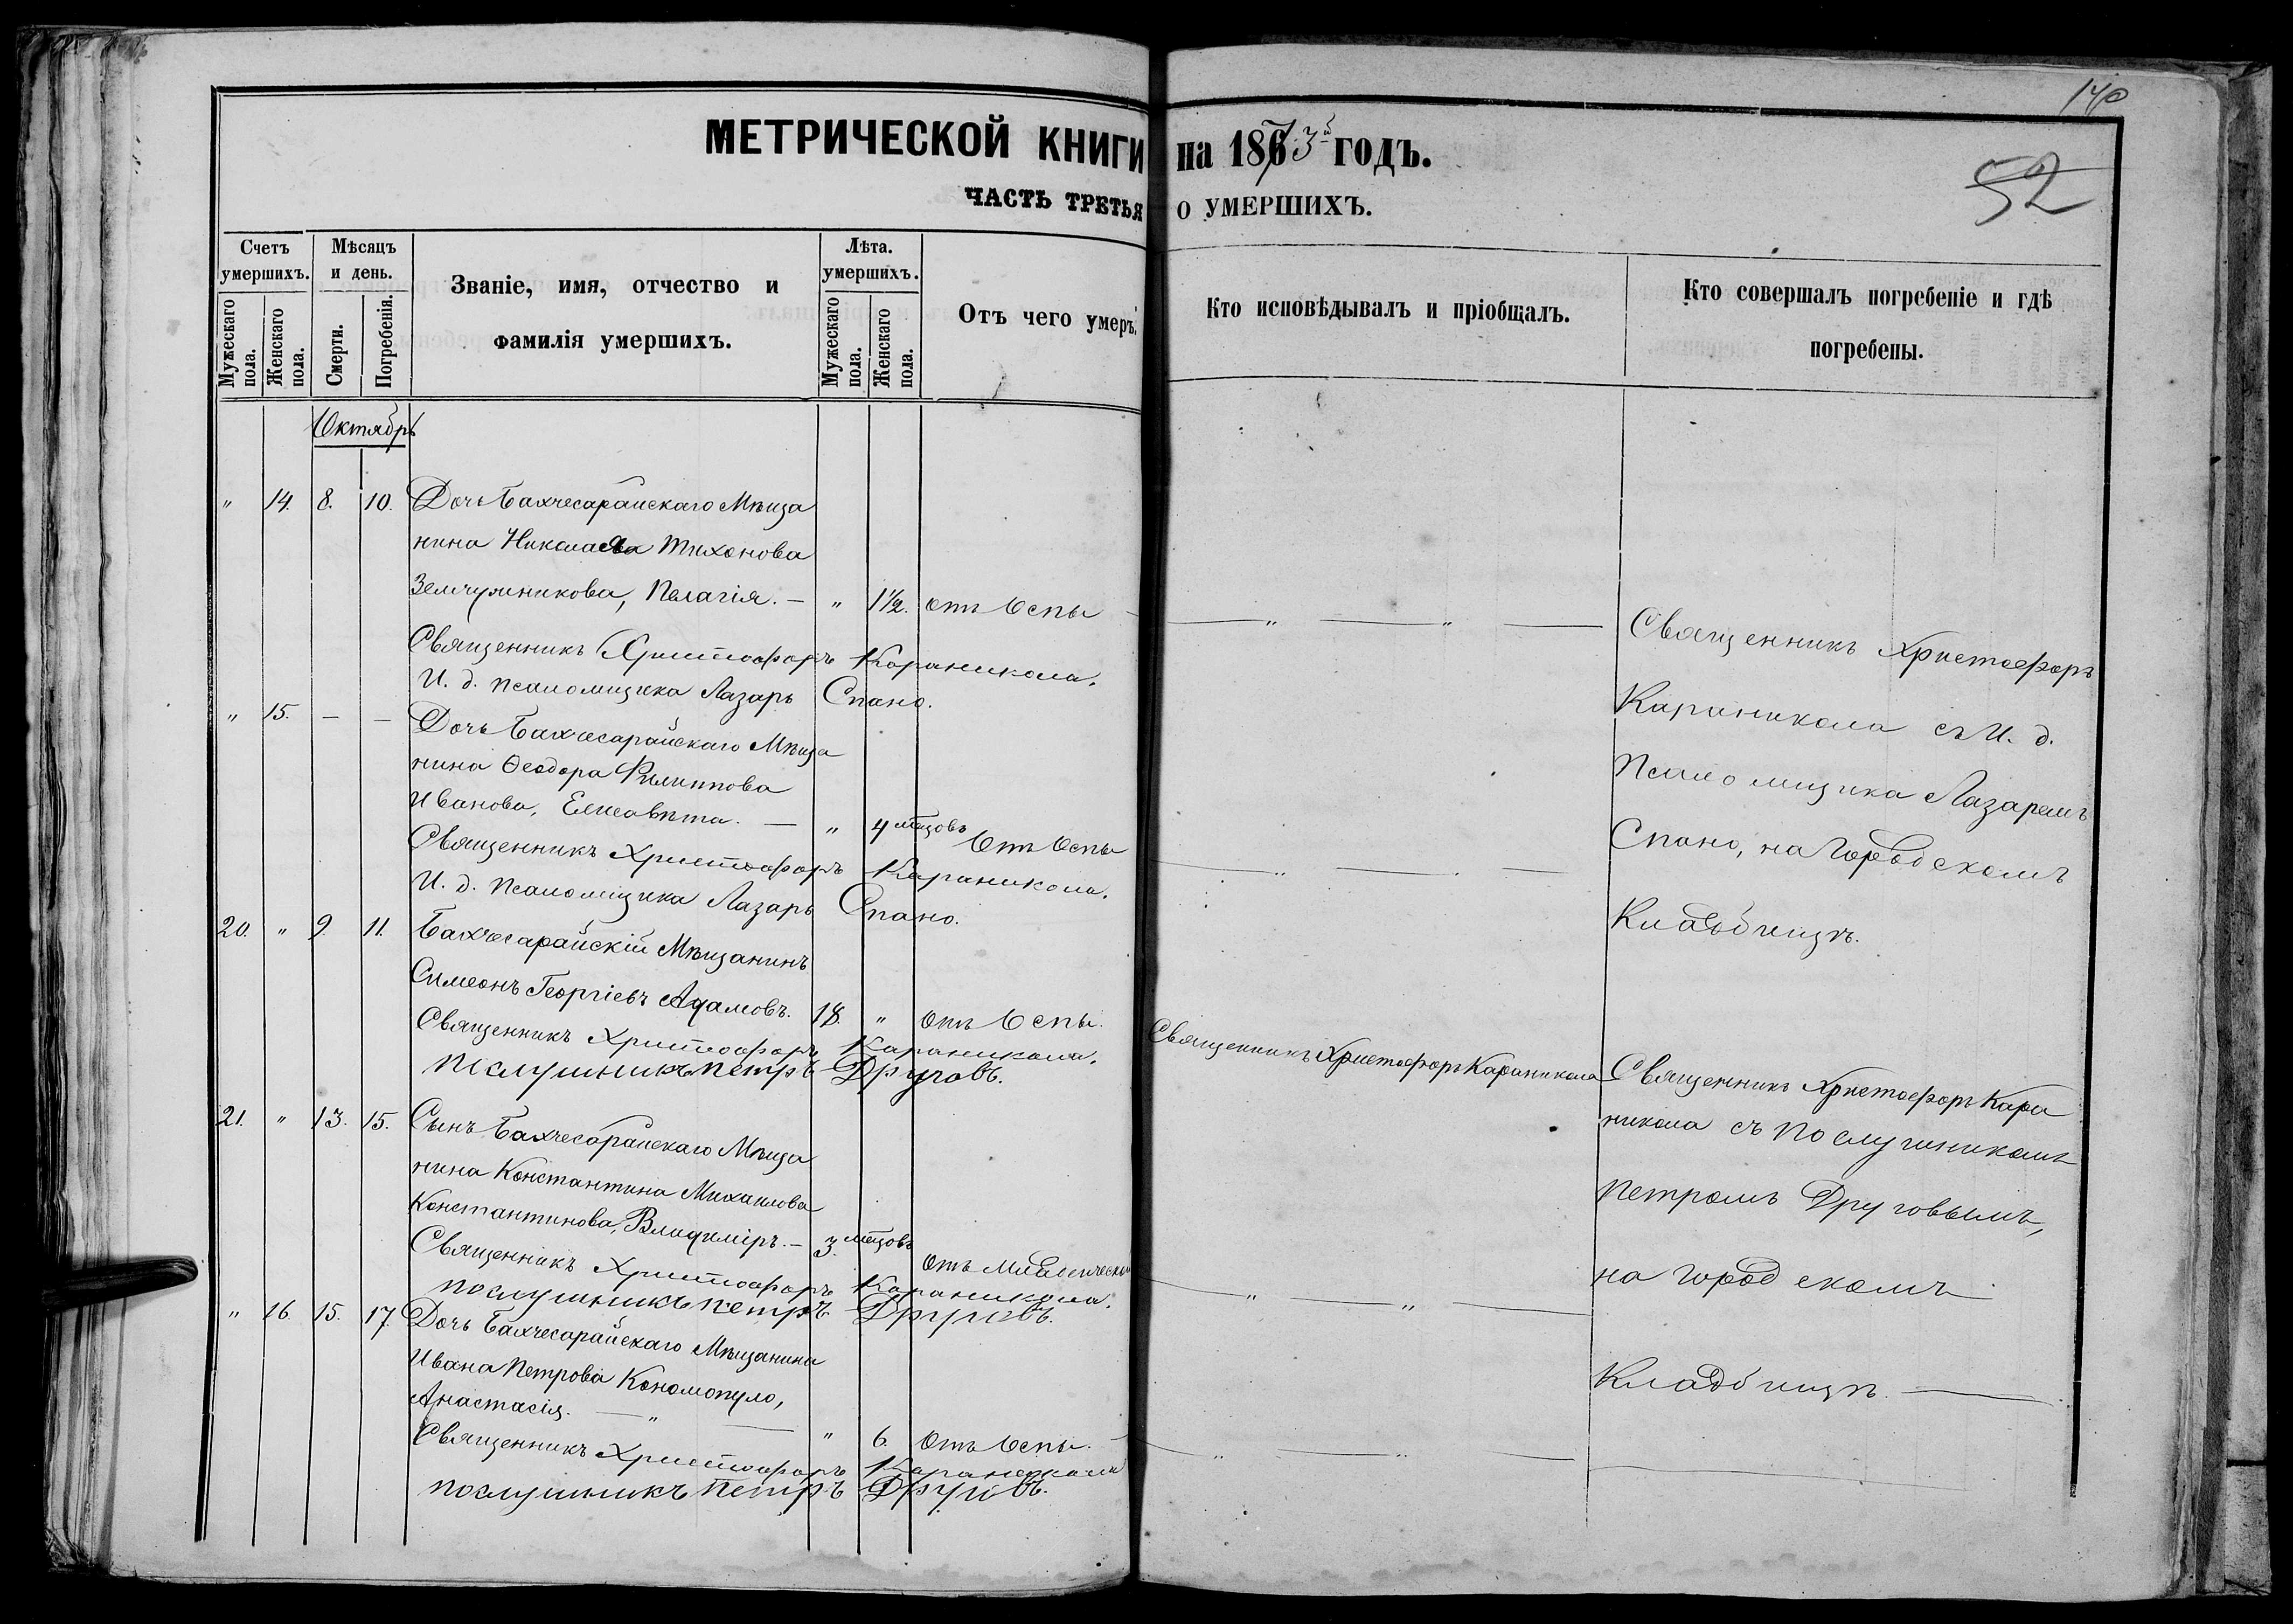 140
52
МЕТРИЧЕСКОЙ КНИГИ на 1873й ГОДЪ.
ЧАСТЬ ТРЕТЬЯ О УМЕРШИХЪ.
Счетъ умершихъ.
Мужескаго пола.
Женскаго пола.
Мѣсяцъ и день.
Смерти.
Погребенія.
Званіе, имя, отчество и
фамилія умершихъ.
Лѣта. умершихъ.
Мужескаго пола.
Женскаго пола.
Отъ чего умеръ.
Кто исповѣдывалъ и пріобщалъ.
Кто совершалъ погребеніе и гдѣ
погребены.
Октябрь
" 14. 8. 10. Дочь Бахчесарайскаго Мѣща
нина Николая Тихонова
Земчужникова, Пелагія. — " 1½. отъ Оспы — " — " —
Священникъ Христофоръ Караникола.
И. д. псаломщика Лазарь Спано.
Священникъ Христофоръ
Караникола съ И. д.
Псаломщика Лазаремъ
Спано, на Городскомъ
Кладбищѣ.
" 15. — — Дочь Бахчесарайскаго Мѣща
нина Ѳеодора Филиппова
Иванова, Елисавѣта. — " 4 мѣцовъ Отъ Оспы
Священникъ Христофоръ Караникола.
И. д. Псаломщика Лазарь Спано.
20. " 9. 11. Бахчесарайскій Мѣщанинъ
Симеонъ Георгіевъ Адамовъ. 18. " Отъ Оспы. Священникъ Христофоръ Караникола
Священникъ Христофоръ Караникола.
Послушникъ Петръ Друговъ.
Священникъ Христофоръ Кара
никола съ Послушникомъ
Петромъ Друговымъ,
на Городскомъ
Кладбищѣ. —
21. " 13. 15. Сынъ Бахчесарайскаго Мѣща
нина Константина Михаилова
Константинова, Владиміръ. — 3. мѣцовъ Отъ
Священникъ Христофоръ Караникола.
Послушникъ Петръ Друговъ.
" 16. 15. 17. Дочь Бахчесарайскаго Мѣщанина
Ивана Петрова Кономопуло,
Анастасія. — " — " 6. Отъ Оспы. — " — " —
Священникъ Христофоръ Караникола
Послушникъ Петръ Друговъ.